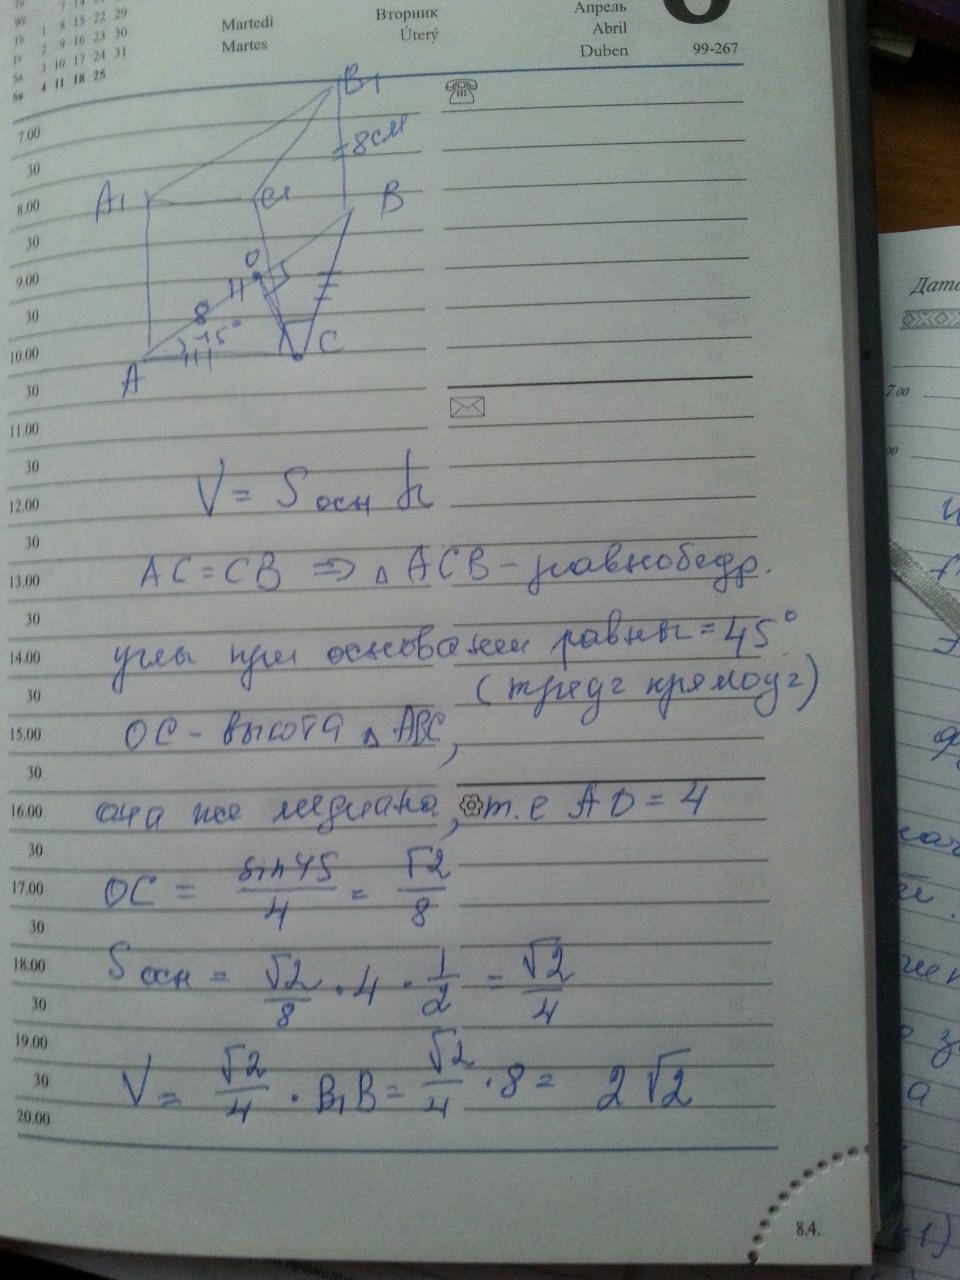 7 14
We 1 8 15 22 29
Th 2 9 16 23 30
Fr 3 10 17 24 31
Sa 4 11 18 25
Martedì
Martes
Вторник
Úterý
Апрель
Abril
Duben
6
99-267
7.00
30
8.00
30
9.00
30
10.00
30
11.00
30
12.00
30
13.00
30
14.00
30
15.00
30
16.00
30
17.00
30
18.00
30
19.00
30
20.00
B₁
8см
A₁
C₁
B
O
8
45°
A
C
V = Sосн h
AC = CB ⇒ △ ACB - равнобедр.
углы при основании равны = 45°
(треуг прямоуг)
OC - высота △ ABC,
она же медиана, т.е AO = 4
OC = sin45/4 = √2/8
Sосн = √2/8 · 4 · 1/2 = √2/4
V = √2/4 · B₁B = √2/4 · 8 = 2√2
8.4.
Дата
7.00